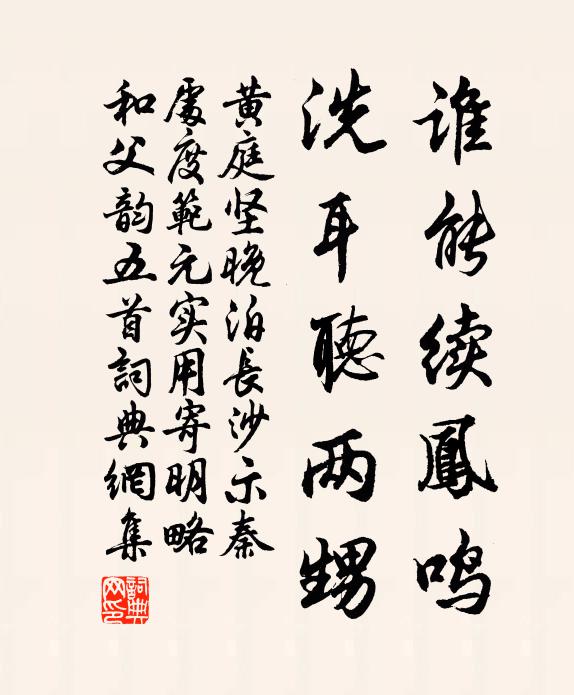 谁能续鳳鸣
洗耳聽两甥
黄庭坚晚泊長沙示秦
處度範元实用寄明略
和父韵五首詞典網集
詞典网印